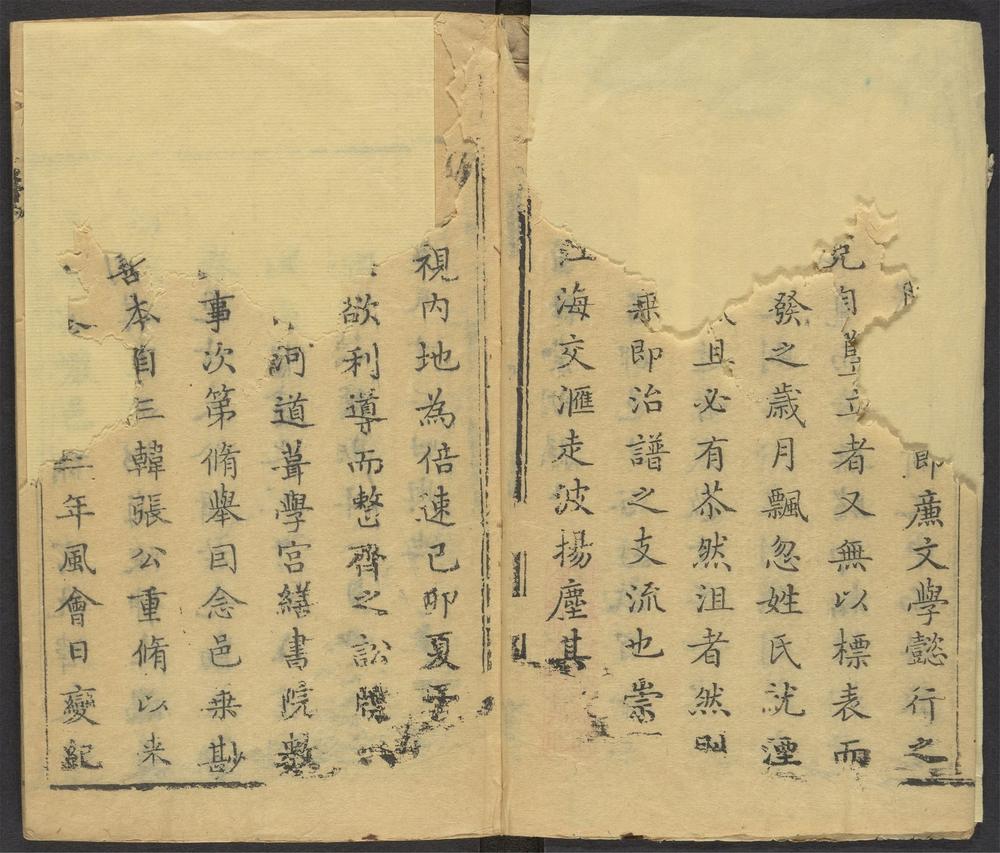 即廉文學懿行之
自豎立者又無以標表而
發之歳月飄忽姓氏沈湮
且必有苶然沮者然則
乘即治譜之支流也崇
江海交滙走波揚塵其
視内地為倍速己卯夏予
欲利導而整齊之訟牒
河道葺學宫繕書院
事次第脩舉囙念邑乘尠
善本自三韓張公重脩以来
年風會日變紀